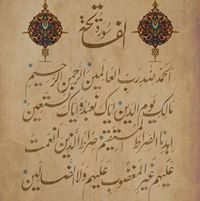 سورة
الفاتحة
الحمد لله رب العالمين الرحمن الرحيم
مالك يوم الدين اياك نعبد و اياك نستعين
اهدنا الصراط المستقيم صراط الذين انعمت
عليهم غير المغضوب عليهم ولا الضالين